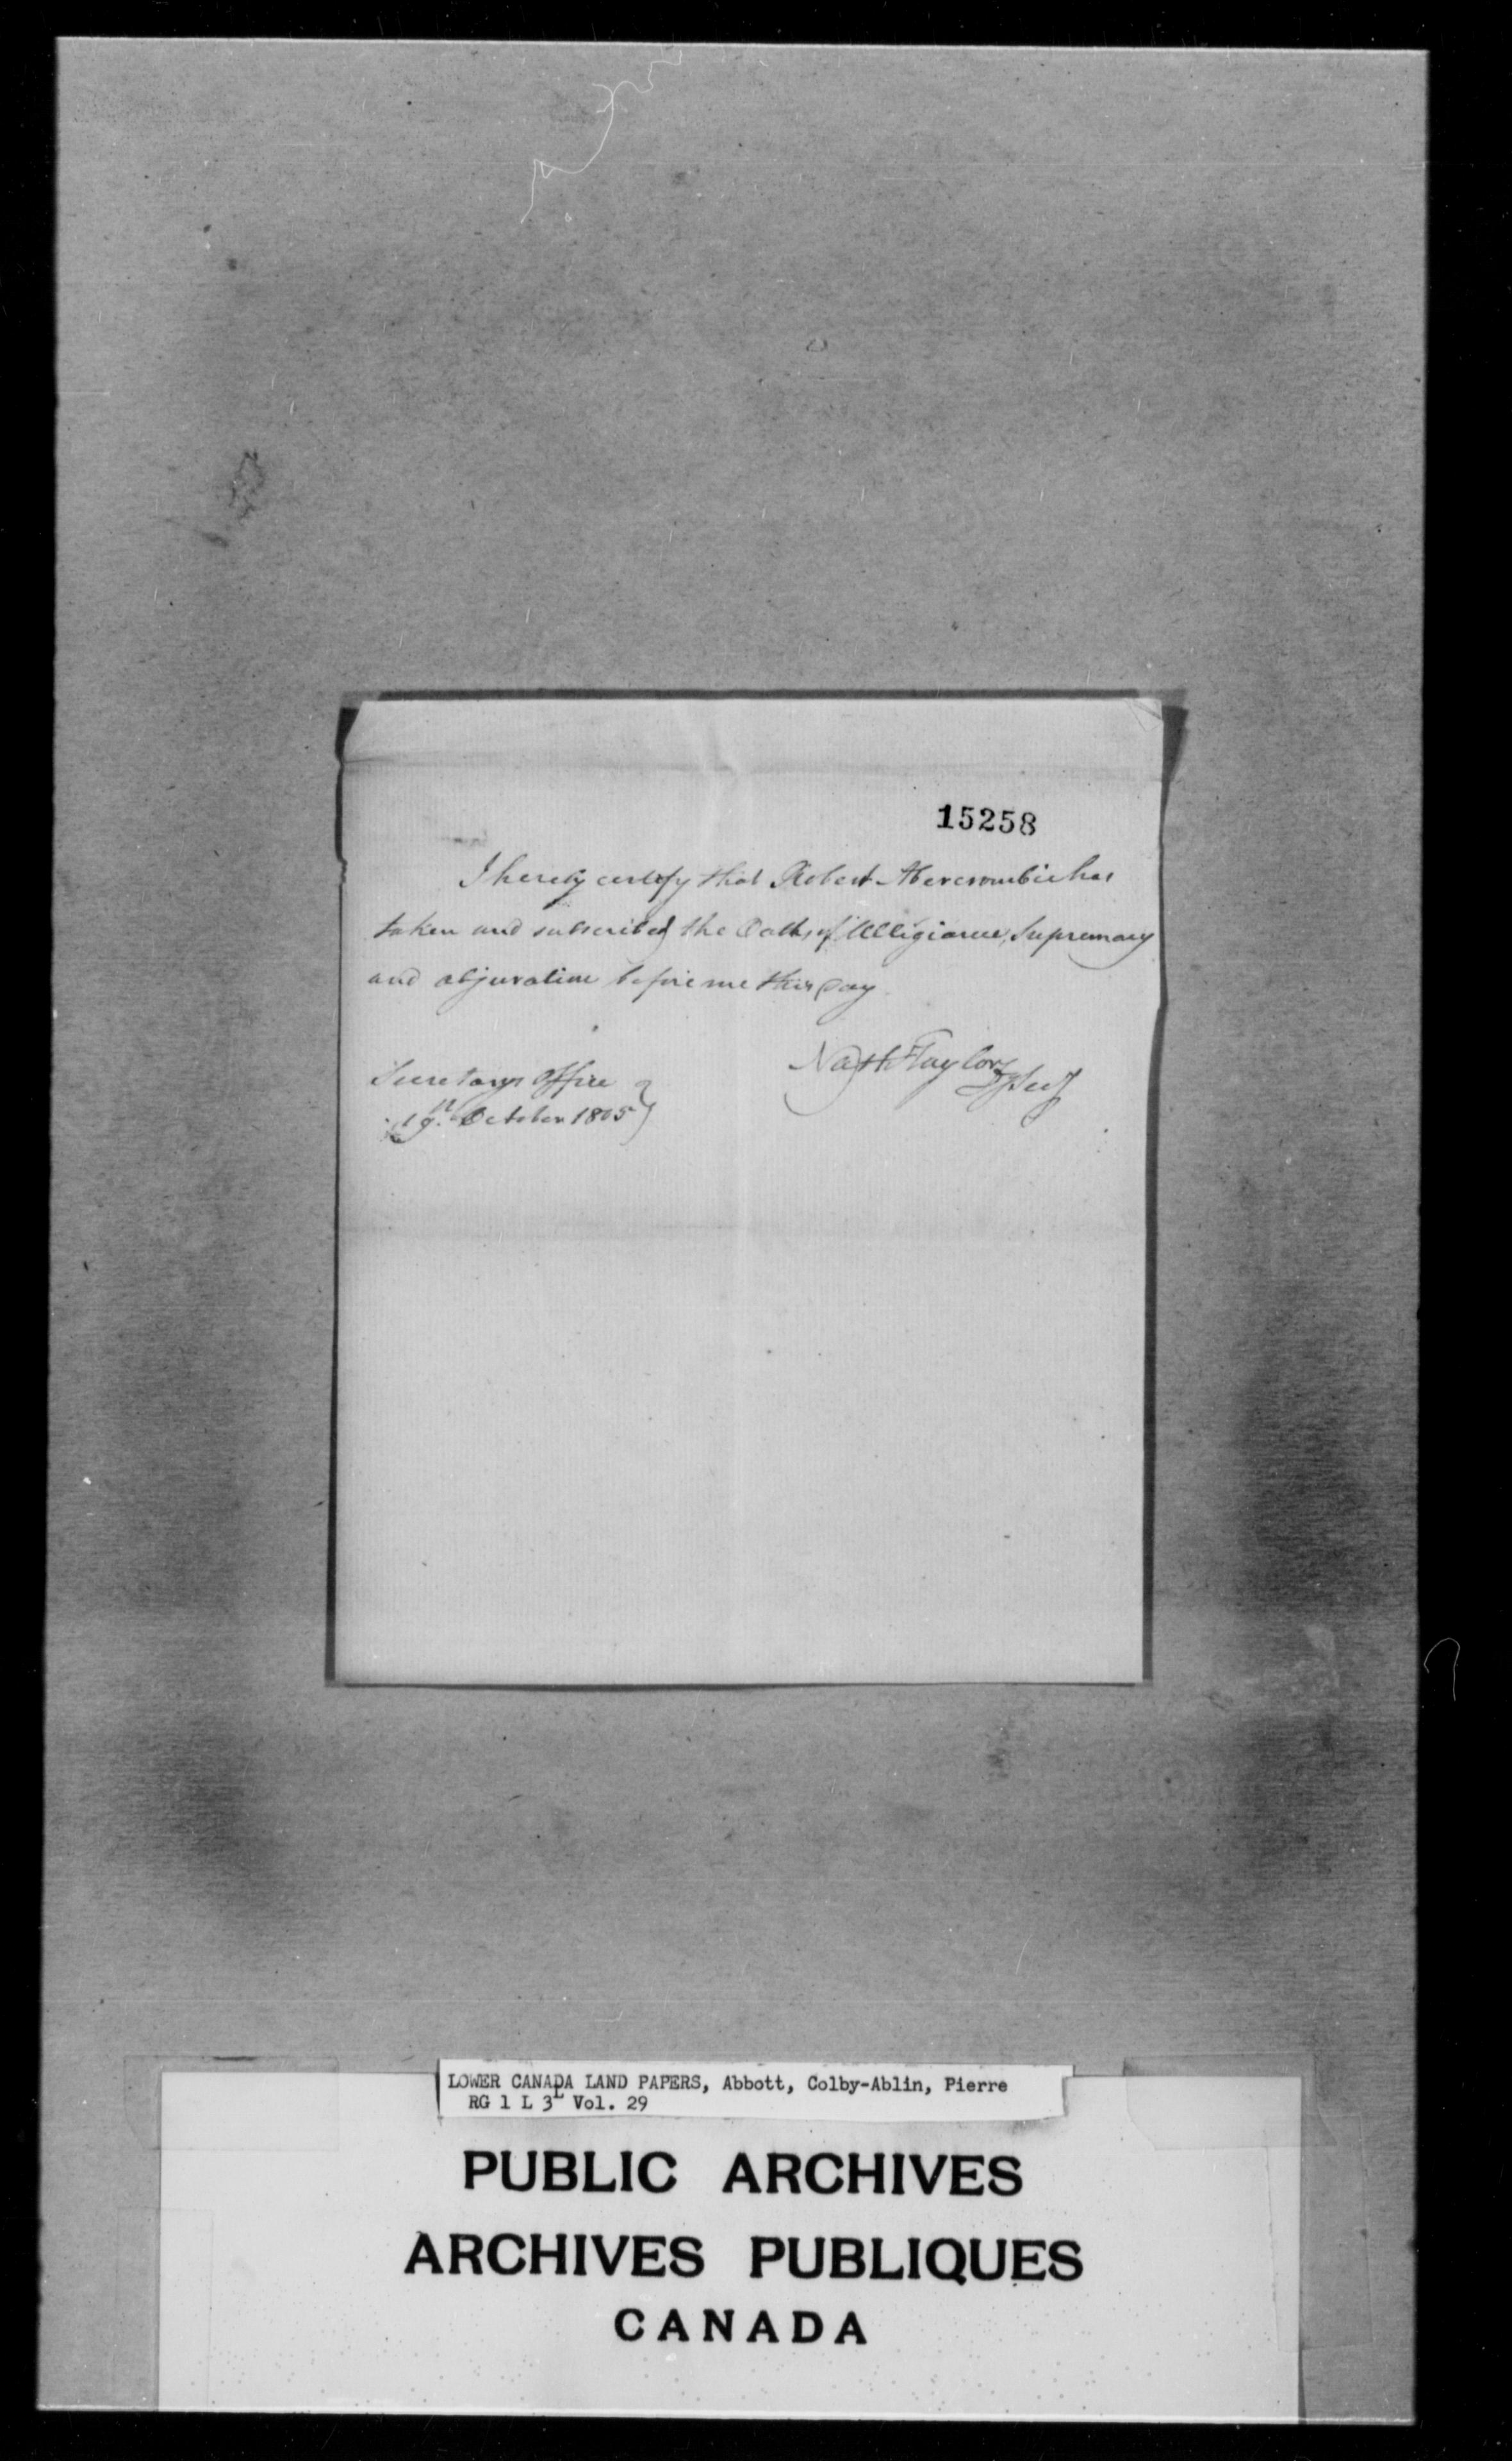 15258
I hereby certify that Robert Abercrombie has
taken and subscribed the Oaths of Allegiance, Supremacy
and abjuration before me this Day
Secretarys Office
19th October 1805
Nath Taylor
Dy Secy
LOWER CANADA LAND PAPERS, Abbott, Colby-Ablin, Pierre
RG 1 L 3L Vol. 29
PUBLIC ARCHIVES
ARCHIVES PUBLIQUES
CANADA